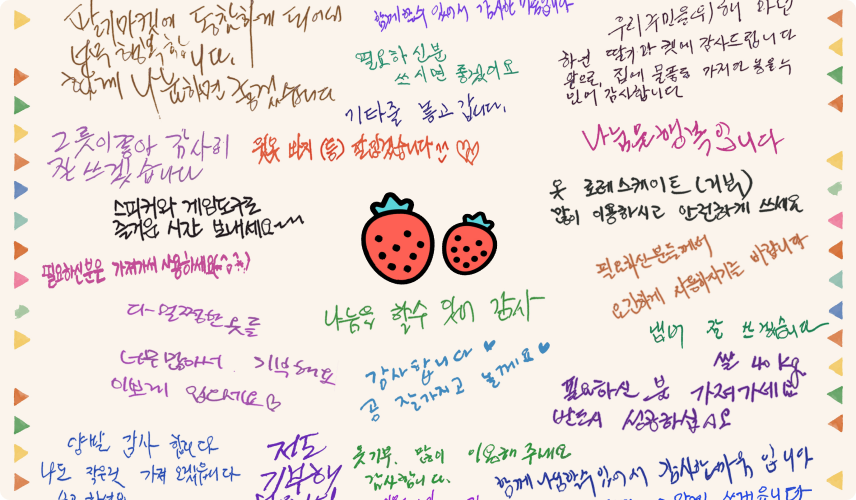 딸기마켓에 동참하게 되어서
너무 행복합니다.
함께 나눔하면 좋겠습니다
함께 할수 있어서 감사한 마음입니다
필요하신분
쓰시면 좋겠어요
기타줄 놓고 갑니다.
우리 주민을 위해
하는 딸기마켓에 감사드립니다
앞으로, 집에 물품을 가져와 놓을 수
있어 감사합니다
나눔은 행복입니다
그릇이 좋아 감사히
잘 쓰겠습니다
윗옷 바지 (등) 잘 입겠습니다
스피커와 게임도구로
즐거운 시간 보내세요~
옷 로래스케이트 (거북)
많이 이용하시고 안전하게 쓰세요
필요하신분은 가져가서 사용하세요^^
필요하신분들께서
요긴하게 사용하시기를 바랍니다
다~얼쩡한 옷을
나눔을 할수 있어 감사
냄비 잘 쓰겠습니다
너무 많아서. 기부해요
이쁘게 입으세요
감사합니다
공 잘가지고 놀게요
쌀 40kg
필요하신 분 가져가세요
반드시 성공하십시오
양말 감사 합니다
나도 작은것 가져 오겠습니다
저도
기부해
옷기부. 많이 이용해 주세요
감사합니다.
함께 나눔할수있어서 감사한마음 입니다